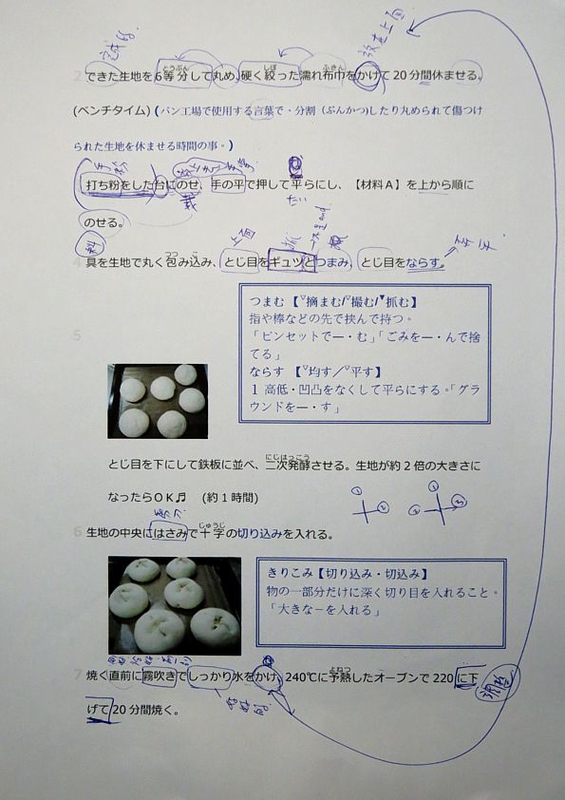 2 できた生地を6等分して丸め、硬く絞った濡れ布巾をかけて20分間休ませる。
(ベンチタイム) (パン工場で使用する言葉で・分割(ぶんかつ)したり丸められて傷つけ
られた生地を休ませる時間の事。)
打ち粉をした台にのせ、手の平で押して平らにし、【材料A】を上から順に
のせる。
4 具を生地で丸く包み込み、とじ目をギュッとつまみ、とじ目をならす。
つまむ【▽摘まむ/▽撮む/▼抓む】
指や棒などの先で挟んで持つ。
「ピンセットで―・む」「ごみを―・んで捨
てる」
ならす【▽均す／▽平す】
1 高低・凹凸をなくして平らにする。「グラ
ウンドを―・す」
5
とじ目を下にして鉄板に並べ、二次発酵させる。生地が約2倍の大きさに
なったらOK♬ (約1時間)
6 生地の中央にはさみで十字の切り込みを入れる。
きりこみ【切り込み・切込み】
物の一部分だけに深く切り目を入れること。
「大きな―を入れる」
7 焼く直前に霧吹きでしっかり水をかけ、240℃に予熱したオーブンで220に下
げて20分間焼く。